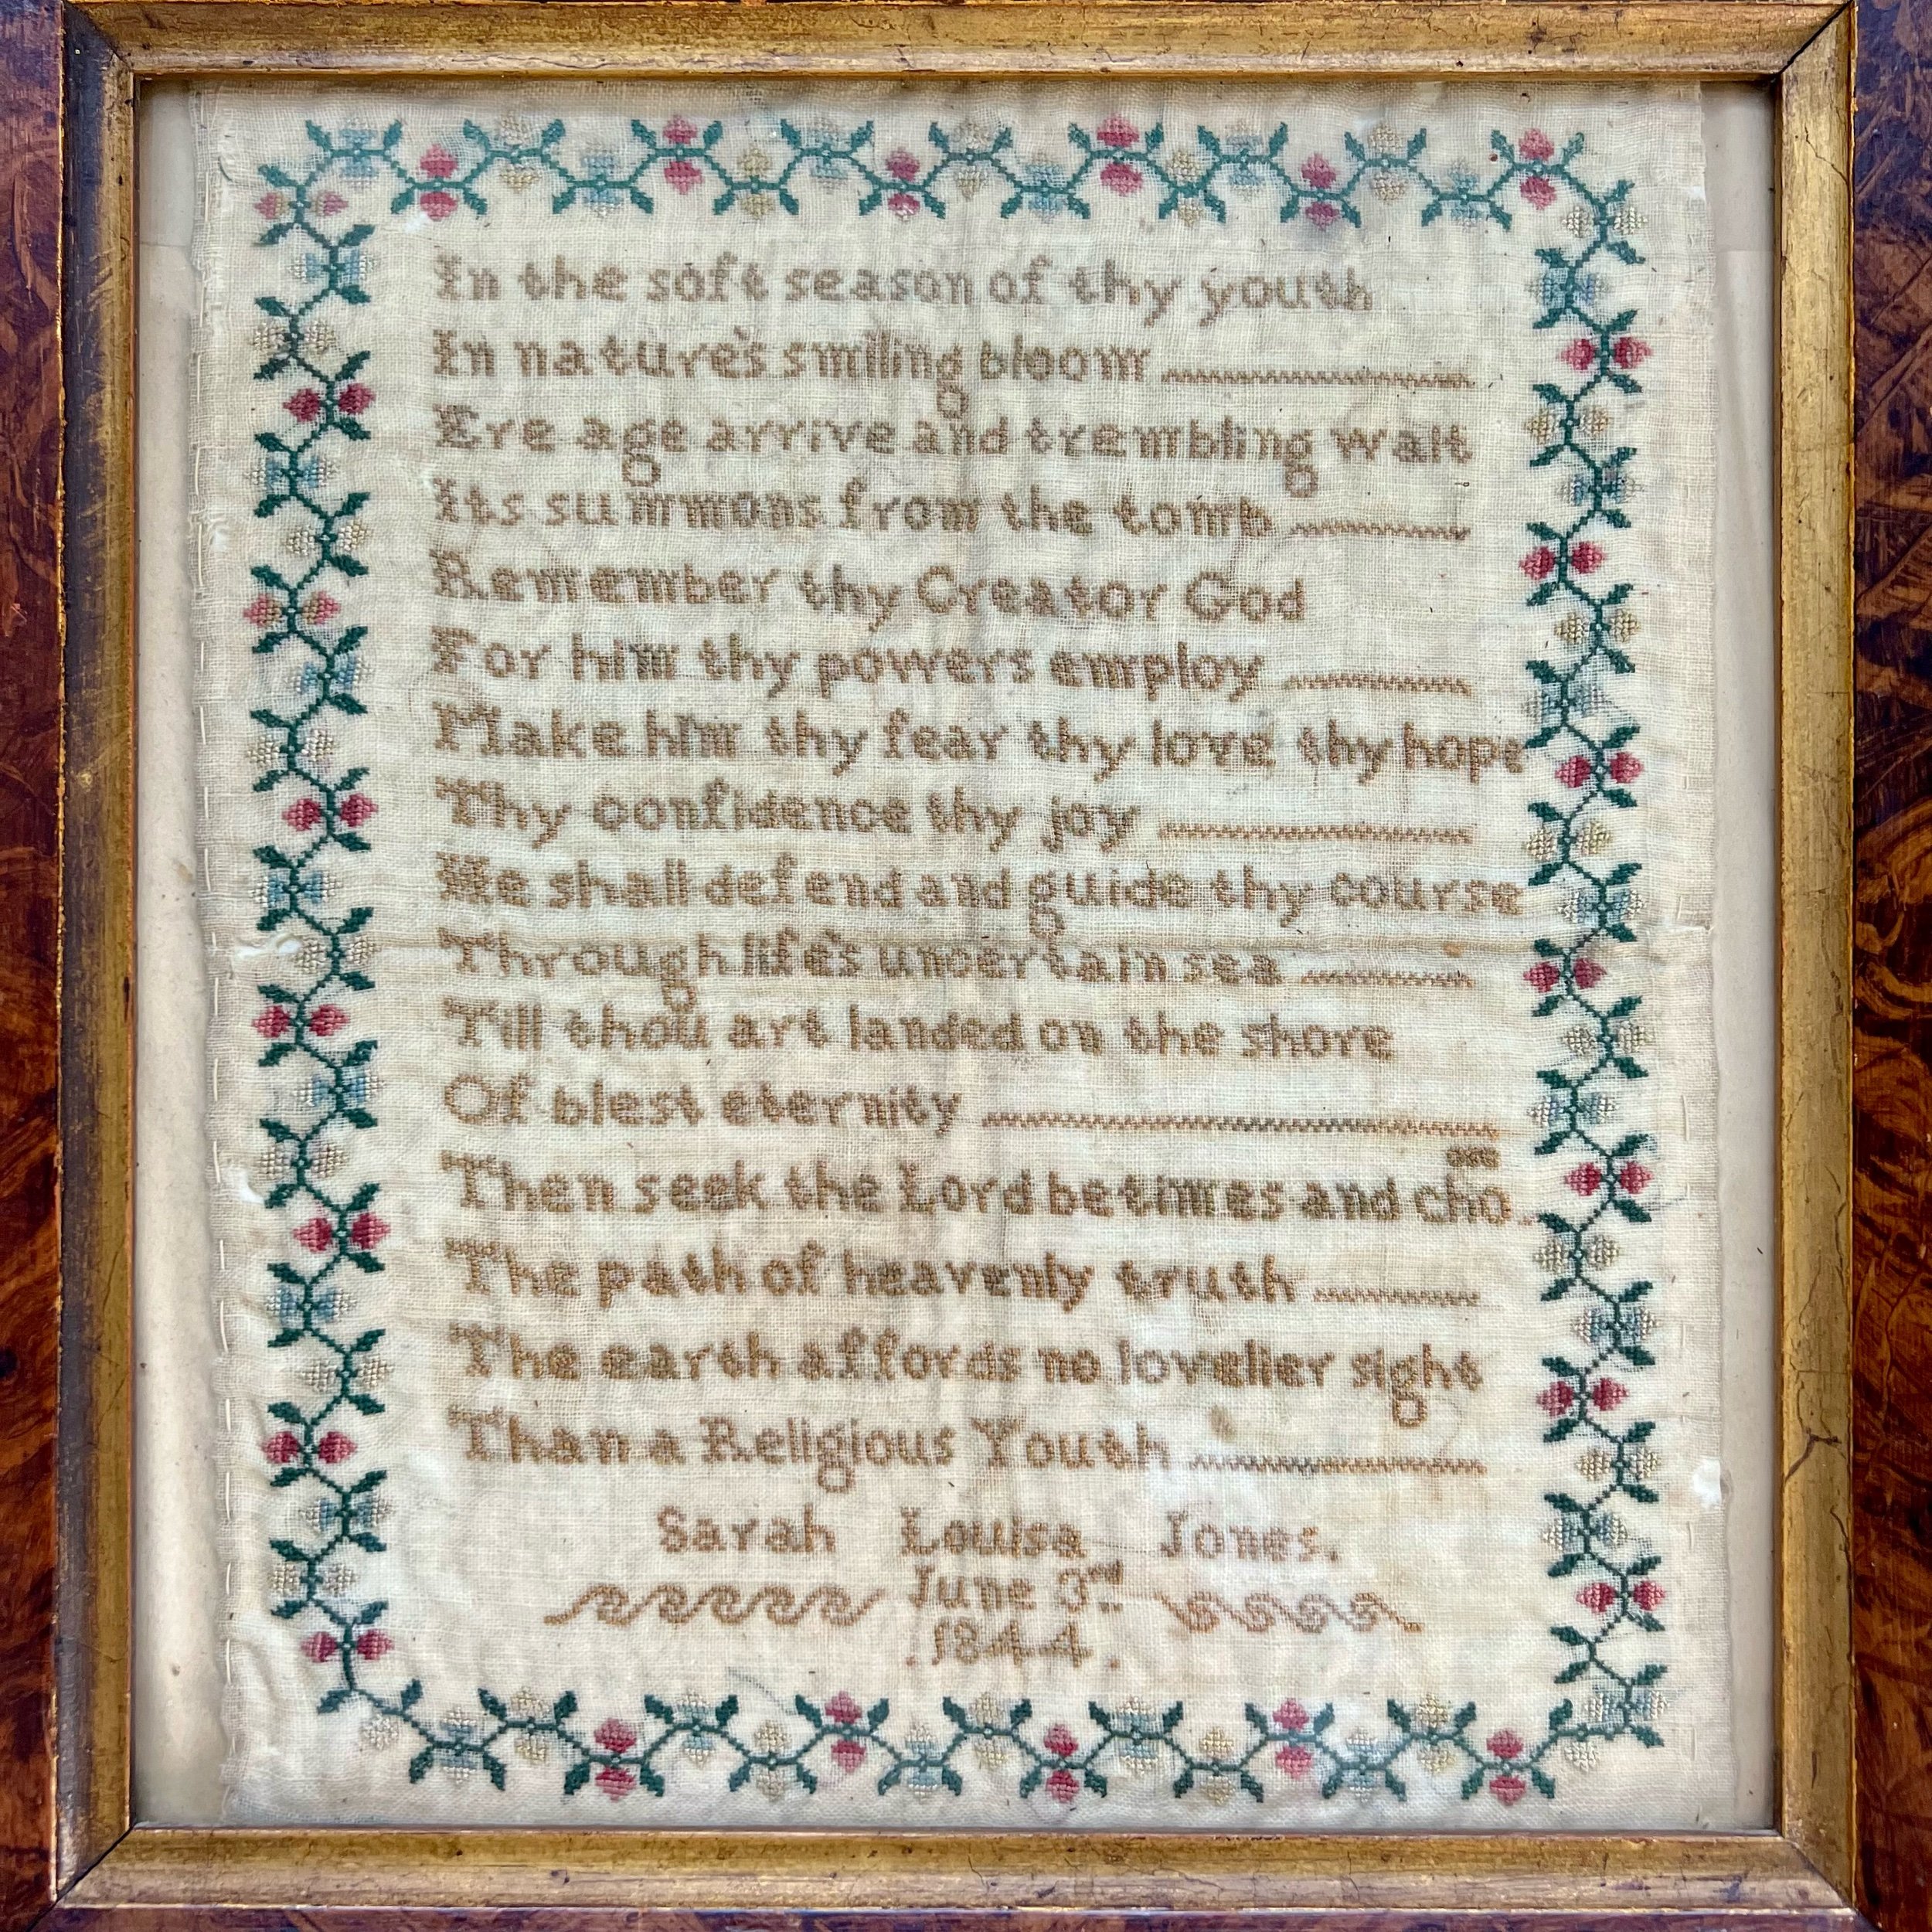 In the soft season of thy youth
In nature's smiling bloom
Ere age arrive and trembling wait
Its summons from the tomb
Remember thy Creator God
For him thy powers employ
Make him thy fear thy love thy hope
Thy confidence thy joy
He shall defend and guide thy course
Through life's uncertain sea
Till thou art landed on the shore
Of blest eternity
Then seek the Lord betimes and cho
ose
The path of heavenly truth
The earth affords no lovelier sight
Than a Religious Youth
Sarah Louisa Jones.
June 3rd
.1844.